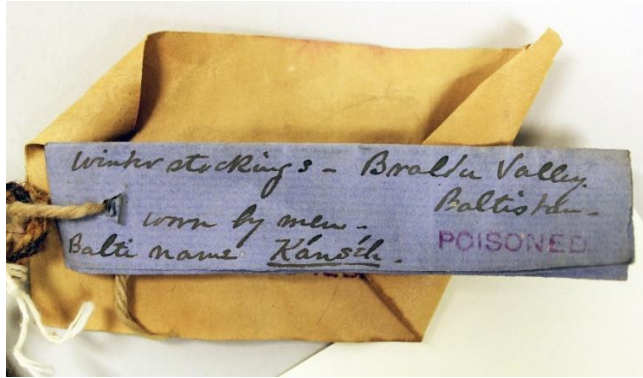 Winter stockings - Braldu Valley.
Baltistan -
worn by men -
Balti name Kánséh.
POISONED